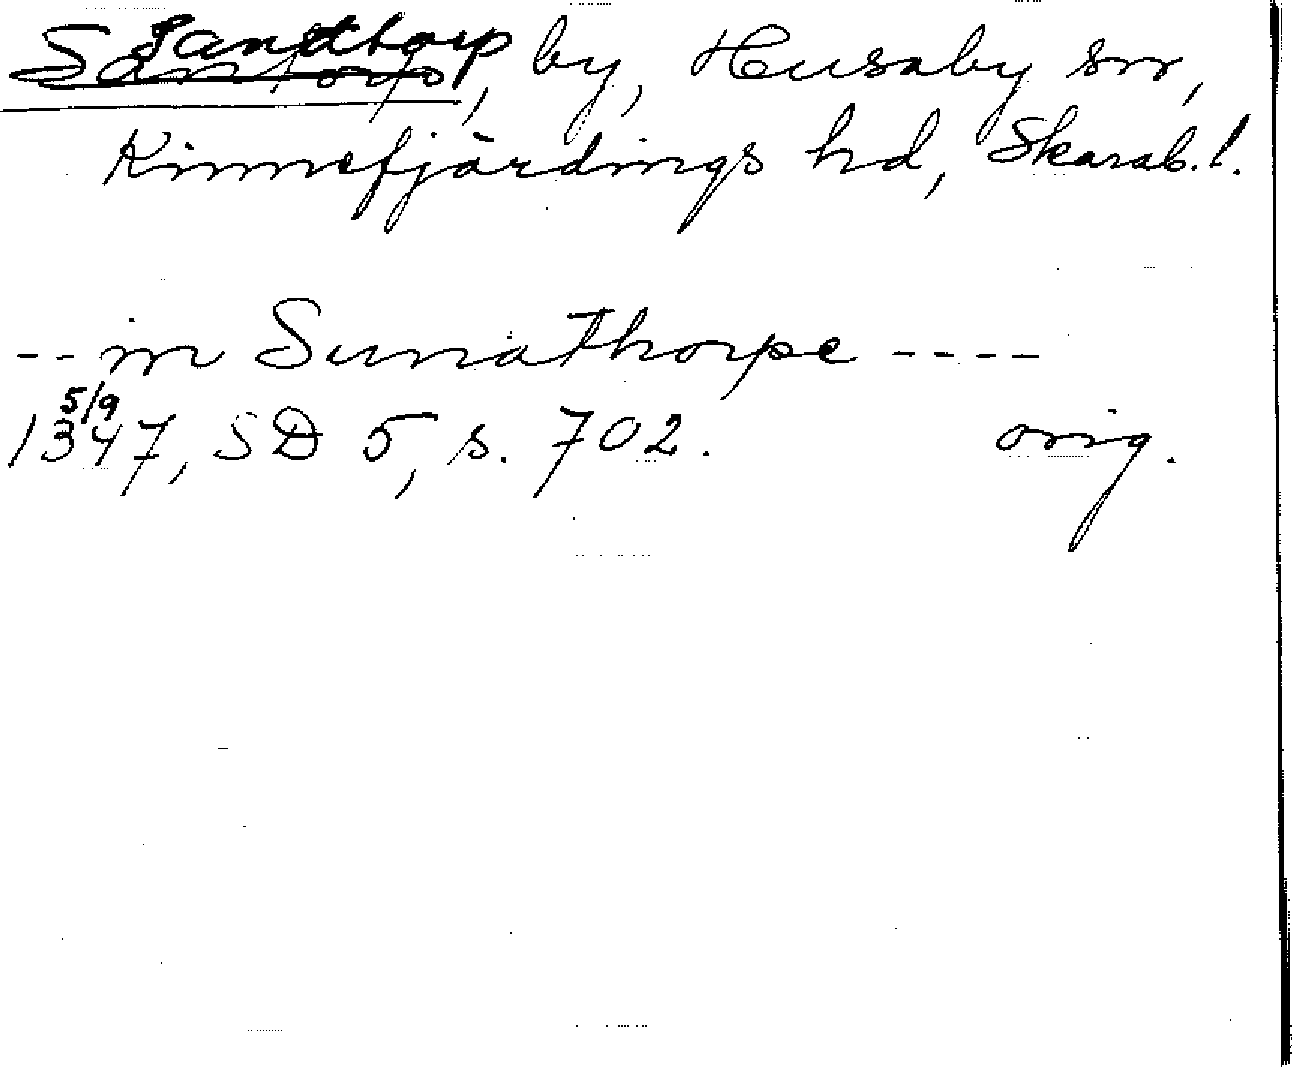 Sandtorp
Santorp, by, Husaby sn,
Kinnefjärdings hd, Skarab. l.
-- in Sunathorpe ----
5/9
1347, SD 5, s. 702. orig.